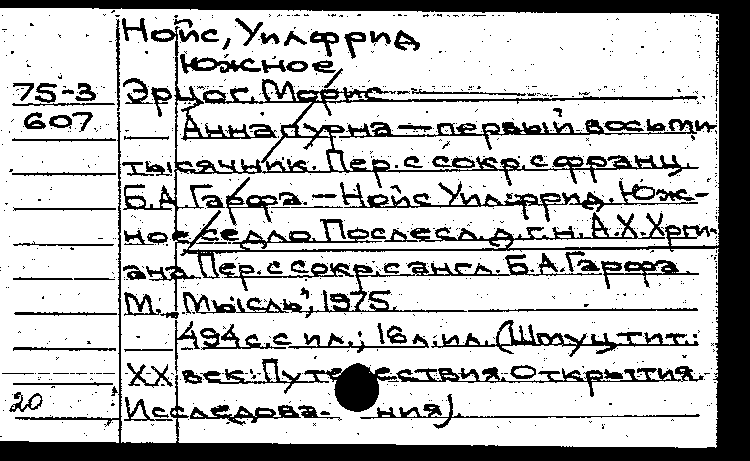 Нойс, Уилфрид
Южное
75-3 Эрцог, Морис
607 Аннапурна — первый восьми-
тысячник. Пер. с сокр. с франц.
Б.А. Гарфа. — Нойс Уилфрид. Юж-
ное седло. Послесл. д.г.н. А.Х.Хрги-
ана. Пер. с сокр. с англ. Б.А.Гарфа.
М. „Мысль", 1975.
494 с. с ил.; 16 л. ил. (Шмуцтит.:
XX век: Путешествия. Открытия.
20 Исследова- ния).